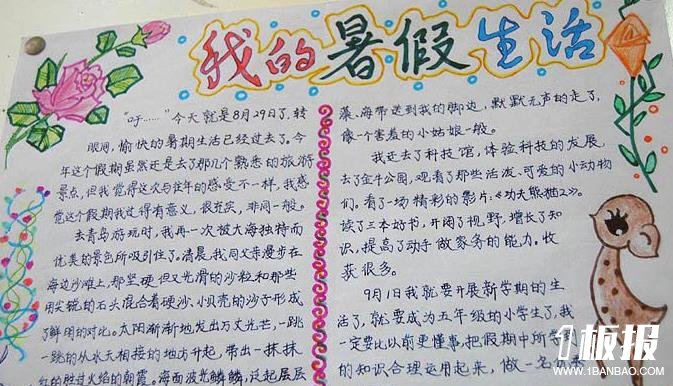 我的暑假生活
“吁……”今天就是8月29日了,转
眼间,愉快的暑期生活已经过去了。今
年这个假期虽然还是去了那几个熟悉的旅游
景点,但我觉得这次与往年的感受不一样,我感
觉这个假期我过得有意义,很充实,非同一般。
去青岛游玩时,我再一次被大海独特而
优美的景色所吸引住了。清晨,我同父亲漫步在
海边沙滩上,那坚硬但又光滑的沙粒和那些
用尖锐的石头混合着硬沙、小贝壳的沙子形成
了鲜明的对比。太阳渐渐地发出万丈光芒,一跳
一跳的从水天相接的地方升起,带出一抹抹
红的胜过火焰的朝霞。海面波光鳞鳞,泛起层层
藻、海带送到我的脚边,默默无声的走了,
像一个害羞的小姑娘一般。
我还去了科技馆,体验科技的发展,
去了金牛公园,观看了那些活泼、可爱的小动物
们。看了一场精彩的影片:《功夫熊猫2》。
读了三本好书,开阔了视野,增长了知
识,提高了动手做家务的能力。收
获很多。
9月1日我就要开展新学期的生
活了,就要成为五年级的小学生了,我
一定要比以前更懂事,把假期中所学
的知识合理运用起来,做一名
1板报
WWW.1BANBAO.COM